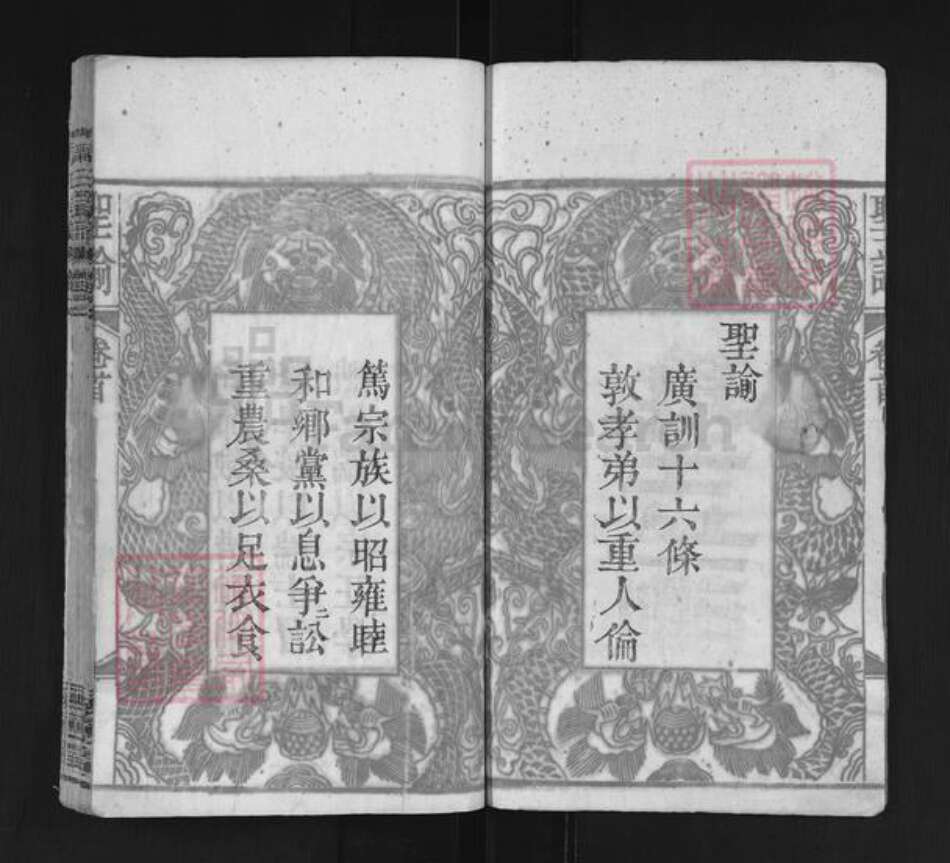 聖諭
廣訓十六條
敦孝弟以重人倫
篤宗族以昭雍睦
和鄉黨以息爭訟
重農桑以足衣食
聖諭
卷首
聖諭
卷首